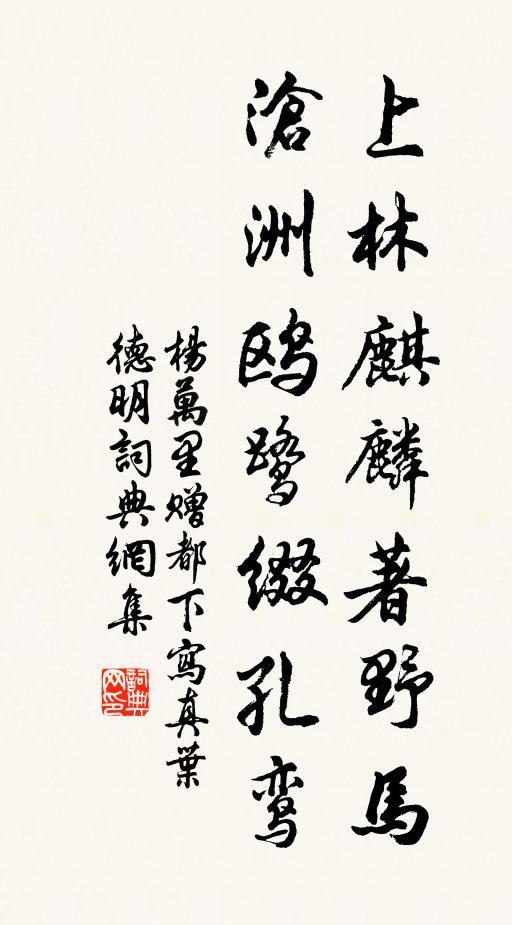 上林麒麟著野馬
滄洲鸥鹭綴孔鸾
楊萬里贈都下寫真葉
德明詞典網集
詞典
网印